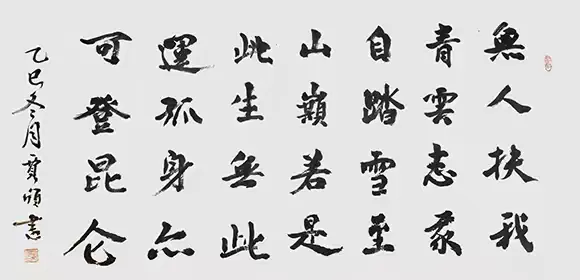 無人扶我
青雲志我
自踏雪至
山巔若是
此生無此
運孤身亦
可登昆仑
乙巳冬月頌書